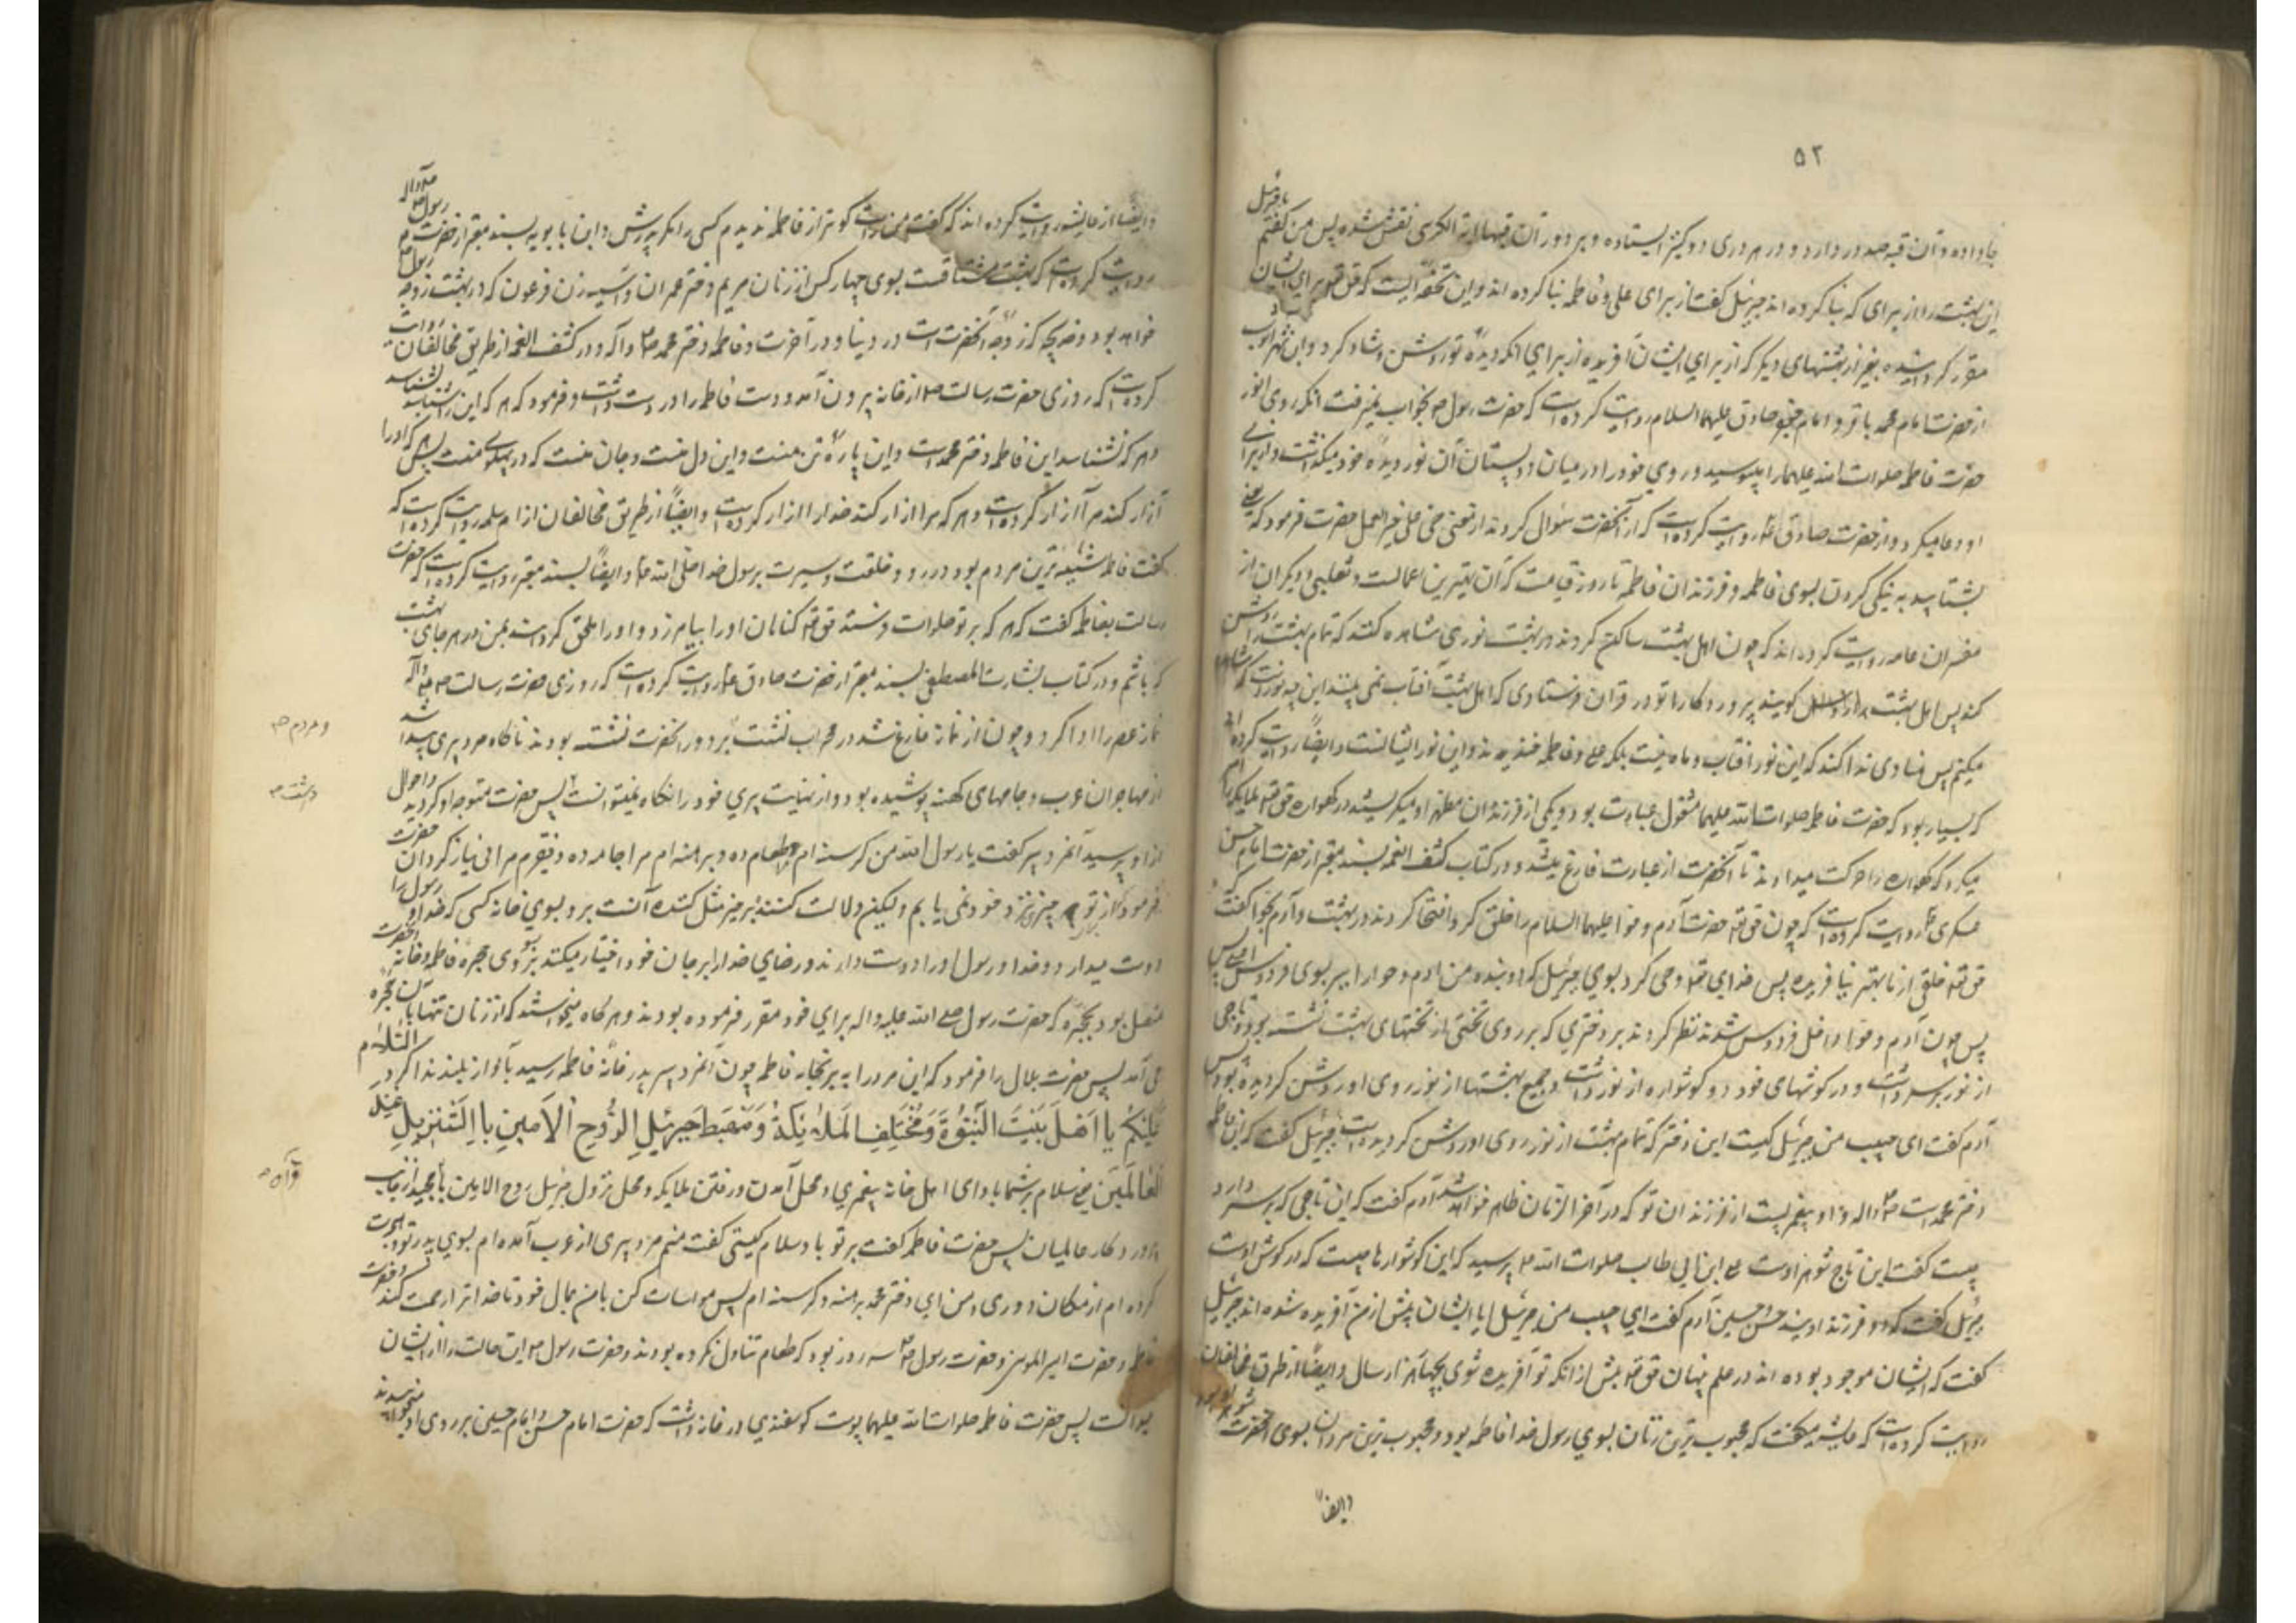 ۵۲
جا داده و آن قبه صد در دارد و در هر دری دو کنیز ایستاده و بر دور آن قبها آیة الکرسی نقش شده پس من گفتم یا جبرئیل
این بهشت را از برای که بنا کرده اند جبرئیل گفت از برای علی و فاطمه بنا کرده اند و این تحفه ایست که حق تعالی برای ایشان
مقرر گردانیده بغیر از بهشتهای دیگر که از برای ایشان آفریده از برای آنکه دیدۀ تو روشن و شاد گردد و ابن شهرآشوب
از حضرت امام محمد باقر و امام جعفر صادق علیهما السلام روایت کرده است که حضرت رسول ص بخواب نمیرفت تا آنکه روی انور
حضرت فاطمه صلوات الله علیهما را میبوسید و روی خود را در میان دو پستان آن نور دیدۀ خود میگذاشت و از برای
او دعا میکرد و از حضرت صادق ع روایت کرده است که از آنحضرت سؤال کردند از معنی حی علی خیر العمل حضرت فرمود که یعنی
بشتابید به نیکی کردن بسوی فاطمه و فرزندان فاطمه تا روز قیامت که آن بهترین اعمالست و ثعلبی و دیگران از
مفسران عامه روایت کرده اند که چون اهل بهشت ساکن گردند در بهشت نوری مشاهده کنند که تمام بهشت را روشن
کند پس اهل بهشت گویند پروردگارا تو در قرآن فرستادی که اهل بهشت آفتاب نمی بینند این چه نور است که مشاهده
میکنیم پس منادی ندا کند که این نور آفتاب و ماه نیست بلکه علی و فاطمه خندیدند و این نور ایشانست و ایضا روایت کرده اند
که بسیار بود که حضرت فاطمه صلوات الله علیهما مشغول عبادت بود و یکی از فرزندان مطهر او میگریستند در گهواره حق تعالی ملایکه را امر
میکرد که گهواره را حرکت میدادند تا آنحضرت از عبادت فارغ میشد و در کتاب کشف الغمه بسند معتبر از حضرت امام حسن
عسکری ع روایت کرده است که چون حق تعالی حضرت آدم و حوا علیهما السلام را خلق کرد افتخار کردند در بهشت و آدم بحوا گفت که
حق تعالی خلقی از ما بهتر نیافریده پس خدای تعالی وحی کرد بسوی جبرئیل که دو بنده من آدم و حوا را ببر بسوی فردوس اعلی پس
پس چون آدم و حوا داخل فردوس شدند نظر کردند بر دختری که بر روی تختی از تختهای بهشت نشسته بود و تاجی
از نور بر سر داشت و در گوشهای خود دو گوشواره از نور داشت و جمیع بهشتها از نور روی او روشن گردیده بود پس
آدم گفت ای حبیب من جبرئیل کیست این دختر که تمام بهشت از نور روی او روشن گردیده است جبرئیل گفت که این فاطمه
دختر محمد است ص و اله و او پیغمبریست از فرزندان تو که در آخر الزمان ظاهر خواهد شد آدم گفت که این تاجی که بر سر دارد
چیست گفت این تاج شوهر اوست علی ابن ابی طالب صلوات الله ع پرسید که این گوشوارها چیست که در گوش اوست
جبرئیل گفت که دو فرزند اویند حسن و حسین آدم گفت ای حبیب من جبرئیل آیا ایشان پیش از من آفریده شده اند جبرئیل
گفت که ایشان موجود بوده اند در علم پنهان حق تعالی پیش از آنکه تو آفریده شوی بچهار هزار سال و ایضا از طرق مخالفان
روایت کرده است که عایشه میگفت که محبوب ترین زنان بسوی رسول خدا فاطمه بود و محبوب ترین مردان بسوی آنحضرت شوهر او بود
و ایضاً
و ایضا از عایشه روایت کرده اند که گفت من راست گوتر از فاطمه ندیدم کسی را مگر پدرش و ابن بابویه بسند معتبر از حضرت رسول صلی و اله
روایت کرده است که بهشت مشتاقست بسوی چهار کس از زنان مریم دختر عمران و آسیه زن فرعون که در بهشت زوجه رسول
خواهد بود و خدیجه که زوجه آنحضرت است در دنیا و در آخرت و فاطمه دختر محمد ص و آله و در کشف الغمه از طریق مخالفان روایت
کرده است که روزی حضرت رسالت ص از خانه بیرون آمد و دست فاطمه را در دست داشت و فرمود که هر که این را شناسد شناسد
و هر که نشناسد این فاطمه دختر محمد است و این پارۀ تن منست و این دل منست و جان منست که در پهلوی منست پس هر که او را
آزار کند مرا آزار کرده است و هر که مرا آزار کند خدا را آزار کرده است و ایضاً از طریق مخالفان از ام سلمه روایت کرده است که
گفت فاطمه شبیه ترین مردم بود در رو و خلقت و سیرت برسول خدا صلی الله ع و ایضاً بسند معتبر روایت کرده است که حضرت
رسالت بفاطمه گفت که هر که بر تو صلوات فرستد حق تعالی گناهان او را بیامرزد و او را ملحق گرداند بمن در هر جای بهشت
که باشم و در کتاب بشارت المصطفی بسند معتبر از حضرت صادق ع روایت کرده است که روزی حضرت رسالت ص و آله
نماز عصر را ادا کرد و چون از نماز فارغ شد در محراب نشست بر دور آنحضرت نشسته بودند ناگاه مرد پیری پیدا شد
و مردم ص
از مهاجران عرب و جامهای کهنه پوشیده بود و از نهایت پیری خود را نگاه نمیتوانست پس حضرت متوجه او گردید و احوال
داشت ص
از او پرسید آنمرد پیر گفت یا رسول الله من گرسنه ام طعام ده و برهنه ام مرا جامه ده و فقیرم مرا بی نیاز گردان حضرت
فرمود که از برای تو چیزی نزد خود نمی یابم ولیکن دلالت کنندۀ بر خیر مثل کنندۀ آنست برو بسوی خانه کسی که خدا و رسول را
دوست میدارد و خدا و رسول او را دوست دارند و رضای خدا را بر جان خود اختیار میکند برو بسوی حجرۀ فاطمه و خانه آنحضرت
متصل بود بحجرۀ که حضرت رسول صلی الله علیه و اله برای خود مقرر فرموده بودند و هرگاه میخواستند که از زنان تنها باشند بآن حجره
می آمد پس حضرت بلال را فرمود که این مرد را ببر بخانه فاطمه چون آنمرد پیر بدر خانۀ فاطمه رسید بآواز بلند ندا کرد السَّلَام
عَلَیْکُمْ یا اَهْلَ بَیْتَ النُّبُوَّةِ وَ مُخْتَلِفِ المَلَائِکَةُ وَ مَهْبَط جَبرئیلِ الرُّوحِ الاَمینِ بِاالتَّنْزیلِ عِنْدِ
العَالَمَینَ یعنی سلام بر شما باد ای اهل خانه پیغمبری و محل آمدن و رفتن ملایکه و محل نزول جبرئیل روح الامین با مجید از جانب
قرآن ص
پروردگار عالمیان پس حضرت فاطمه گفت بر تو باد سلام کیستی گفت منم مرد پیری از عرب آمده ام بسوی پدر تو و هجرت
کرده ام از مکان دوری و من ای دختر محمد برهنه و گرسنه ام پس مواسات کن با من بمال خود تا خدا ترا رحمت کند و حضرت
فاطمه و حضرت امیر المومنین و حضرت رسول ص سه روز بود که طعام تناول نکرده بودند و حضرت رسول ص این حالت را از ایشان
میدانست پس حضرت فاطمه صلوات الله علیهما پوست گوسفندی در خانه داشت که حضرت امام حسن و امام حسین بر روی او میخوابیدند